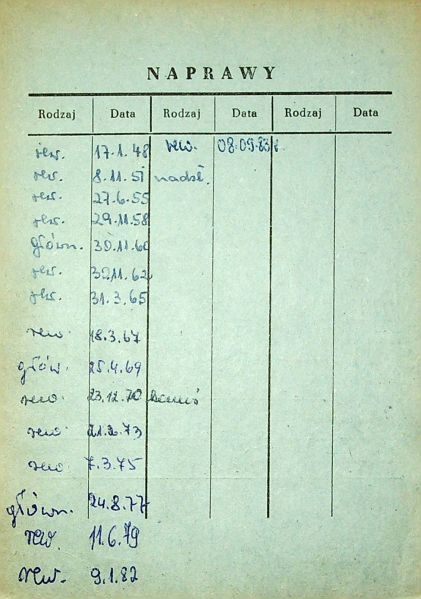 NAPRAWY
Rodzaj Data Rodzaj Data Rodzaj Data
rew. 17.1.48 rew. 08.09.83r
rew. 8.11.51
rew. 27.6.55
rew. 29.11.58
główn. 30.11.60
rew. 30.11.62
rew. 31.3.65
rew 18.3.67
głów. 25.4.69
rew 23.12.70
rew 21.2.73
rew 7.3.75
główn. 24.8.77
rew. 11.6.79
rew. 9.1.82